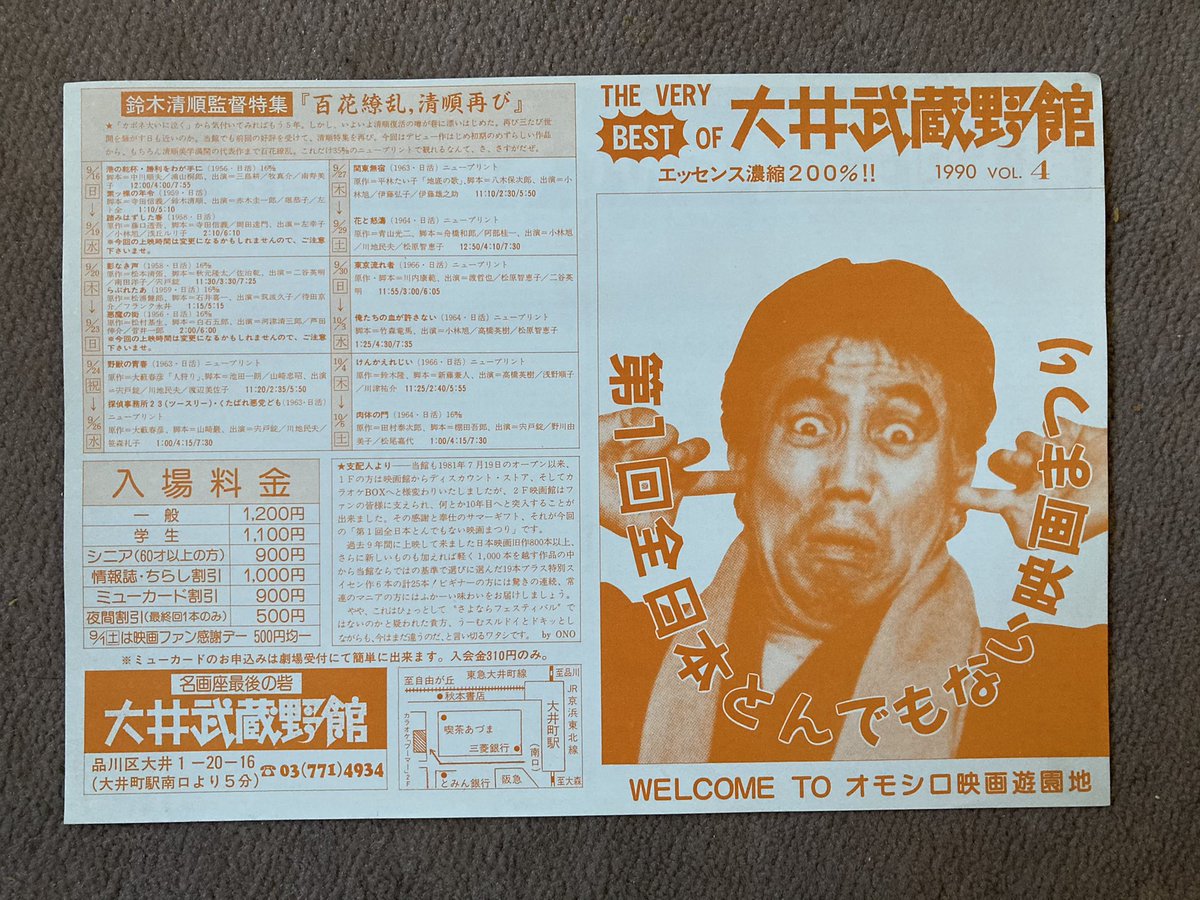 鈴木清順監督特集『百花繚乱,清順再び』
★「カポネ大いに泣く」から気付いてみればもう5年。しかし、いよいよ清順復活の噂が巷に漂いはじめた。再び三たび世
間を騒がす日も近いのか。当館でも前回の好評を受けて、清順特集を再び。今回はデビュー作はじめ初期のめずらしい作品
から、もちろん清順美学満開の代表作まで百花繚乱。これだけ35㎜のニュープリントで観れるなんて、さ、さすがだぜ。
9/16
日
↓
9/19
水
港の乾杯・勝利をわが手に(1956・日活)16㎜
脚本=中川順夫/浦山桐郎、出演=三島耕/牧真介/南寿美
子 12:00/4:00/7:55
素ッ裸の年令(1959・日活)
脚本=寺田信義/鈴木清順、出演=赤木圭一郎/堀恭子/左
卜全 1:10/5:10
踏みはずした春(1958・日活)
原作=藤口透吾、脚本=寺田信義/岡田達門、出演=左幸子
/小林旭/浅丘ルリ子 2:10/6:10
※今回の上映時間は変更になるかもしれませんので、ご注意
下さいませ。
9/20
木
↓
9/23
日
影なき声(1958・日活)16㎜
原作=松本清張、脚本=秋元隆太/佐治乾、出演=二谷英明
/南田洋子/宍戸錠 11:30/3:30/7:25
らぶれたあ(1959・日活)16㎜
原作=松浦健郎、脚本=石井喜一、出演=筑波久子/待田京
介/フランク永井 1:15/5:15
悪魔の街(1956・日活)16㎜
原作=松村基生、脚本=白石五郎、出演=河津清三郎/芦田
伸介/菅井一郎 2:00/6:00
※今回の上映時間は変更になるかもしれませんので、ご注意
下さいませ。
9/24
祝
↓
9/26
水
野獣の青春(1963・日活)ニュープリント
原作=大藪春彦「人狩り」、脚本=池田一朗/山崎忠昭、出演
=宍戸錠/川地民夫/渡辺美佐子 11:20/2:35/5:50
探偵事務所23(ツースリー)・くたばれ悪党ども(1963・日活)
ニュープリント
原作=大藪春彦、脚本=山崎巌、出演=宍戸錠/川地民夫/
笹森礼子 1:00/4:15/7:30
9/27
木
↓
9/29
土
関東無宿(1963・日活)ニュープリント
原作=平林たい子「地底の歌」、脚本=八木保次郎、出演=小
林旭/伊藤弘子/伊藤雄之助 11:10/2:30/5:50
花と怒濤(1964・日活)ニュープリント
原作=青山光二、脚本=舟橋和郎/阿部桂一、出演=小林旭
/川地民夫/松原智恵子 12:50/4:10/7:30
9/30
日
↓
10/3
水
東京流れ者(1966・日活)ニュープリント
原作・脚本=川内康範、出演=渡哲也/松原智恵子/二谷英
明 11:55/3:00/6:05
俺たちの血が許さない(1964・日活)ニュープリント
脚本=竹森竜馬、出演=小林旭/高橋英樹/松原智恵子
1:25/4:30/7:35
10/4
木
↓
10/6
土
けんかえれじい(1966・日活)ニュープリント
原作=鈴木隆、脚本=新藤兼人、出演=高橋英樹/浅野順子
/川津祐介 11:25/2:40/5:55
肉体の門(1964・日活)16㎜
原作=田村泰次郎、脚本=棚田吾郎、出演=宍戸錠/野川由
美子/松尾嘉代 1:00/4:15/7:30
入場料金
一般 1,200円
学生 1,100円
シニア(60才以上の方) 900円
情報誌・ちらし割引 1,000円
ミューカード割引 900円
夜間割引(最終回1本のみ) 500円
9/1(土)は映画ファン感謝デー 500円均一
★支配人より――当館も1981年7月19日のオープン以来、
1Fの方は映画館からディスカウント・ストア、そしてカ
ラオケBOXへと様変わりいたしましたが、2F映画館はフ
ァンの皆様に支えられ、何とか10年目へと突入することが
出来ました。その感謝と奉仕のサマーギフト、それが今回
の「第1回全日本とんでもない映画まつり」です。
過去9年間に上映して来ました日本映画旧作800本以上、
さらに新しいものも加えれば軽く1,000本を越す作品の中
から当館ならではの基準で選びに選んだ19本プラス特別ス
イセン作6本の計25本!ビギナーの方には驚きの連続、常
連のマニアの方にはふか一い味わいをお届けしましょう。
やや、これはひょっとして“さよならフェスティバル”で
はないのかと疑われた貴方、うーむスルドイとドキッとし
ながらも、今はまだ違うのだ、と言い切るワタシです。 by ONO
※ミューカードのお申込みは劇場受付にて簡単に出来ます。入会金310円のみ。
名画座最後の砦
大井武蔵野館
品川区大井1-20-16
(大井町駅南口より5分)
☎03(771)4934
至自由が丘
東急大井町線
至品川
秋本書店
喫茶あづま
三菱銀行
大井町駅
(南口)
JR京浜東北線
カラオケ・ブーマー2F
とみん銀行
阪急
至大森
THE VERY
BEST OF 大井武蔵野館
エッセンス濃縮200%!! 1990 VOL. 4
第1回全日本とんでもない映画まつり
WELCOME TO オモシロ映画遊園地